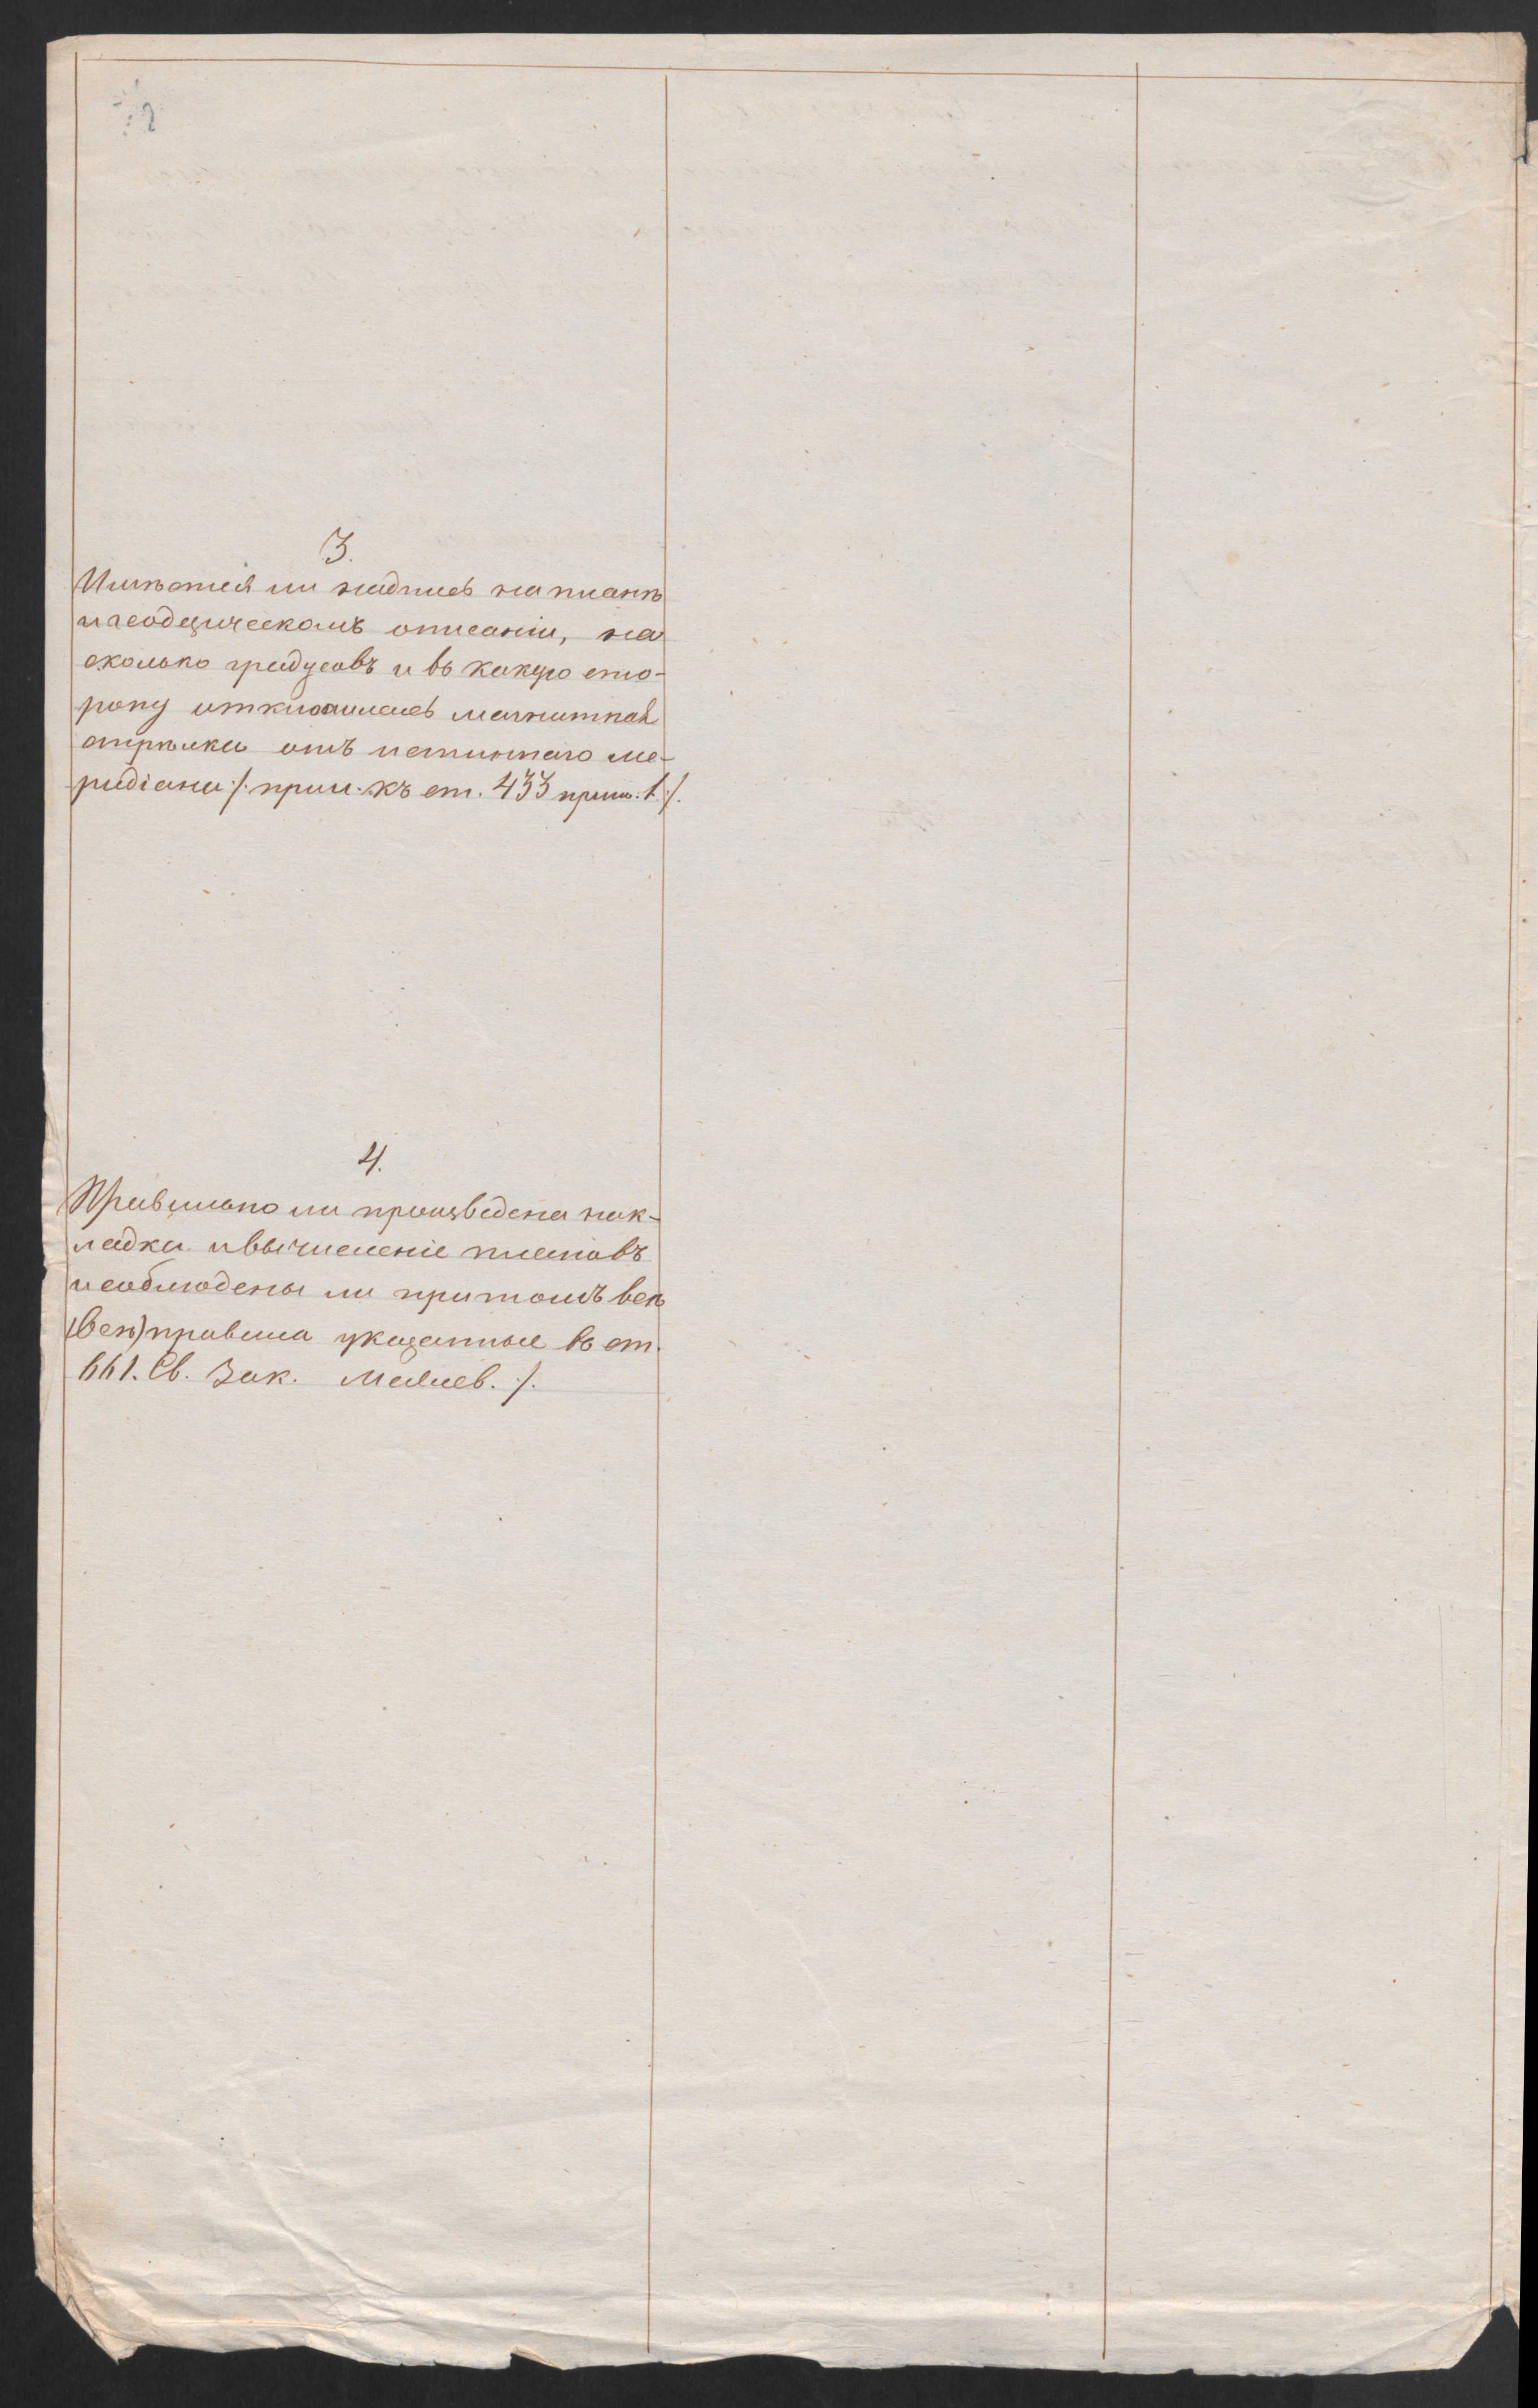 3.
Имѣется ли надпись на планѣ
и геодезическомъ описаніи, на
сколько градусовъ и въ какую сто-
рону отклонилась магнитная
стрѣлка отъ истиннаго ме-
ридіана /. прим. къ ст. 433 прим. 1 /.
4.
Правильно ли произведена нак-
ладка и вычисленіе плановъ
и соблюдены ли притомъ всѣ
(всѣ) правила указанные въ ст.
661. Св. Зак. Межев. /.